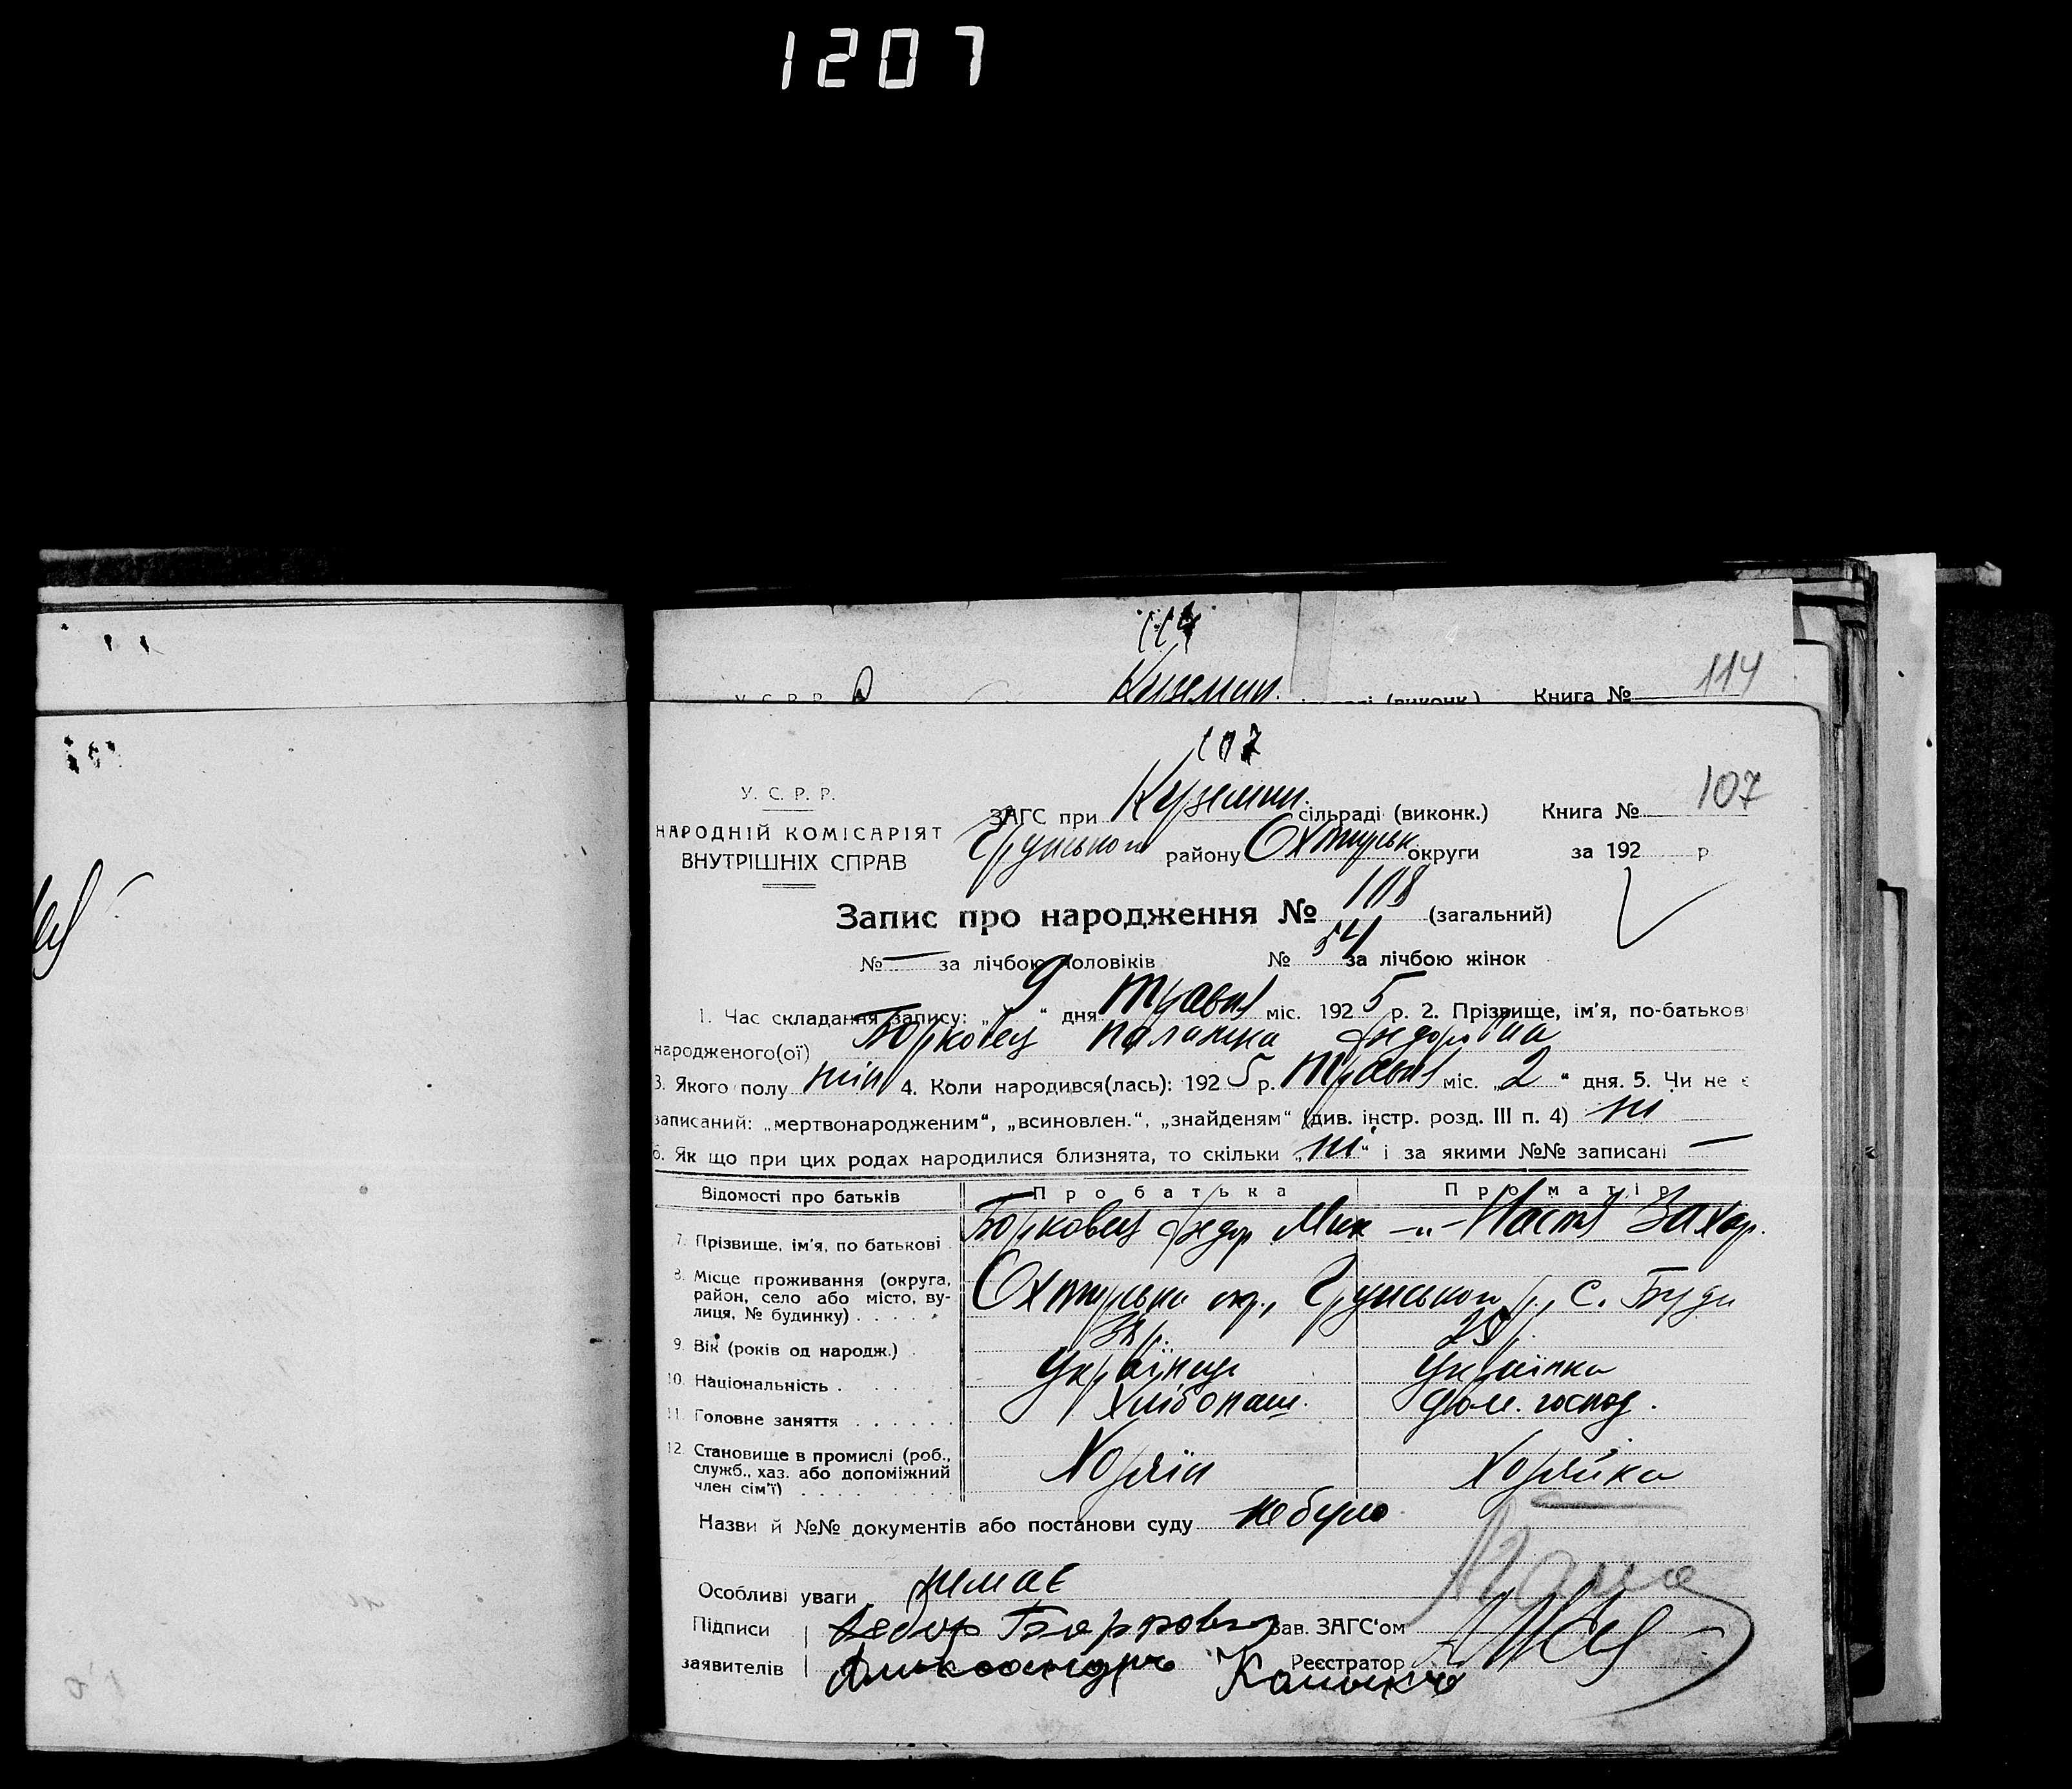 1207
114
Куземин. Книга №
114
107
107
У. С. Р. Р.
НАРОДНІЙ КОМІСАРІЯТ
ВНУТРІШНІХ СПРАВ
ЗАГС при Куземин. сільраді (виконк.) Книга №
Грунського району Охтирськ округи за 192 р
Запис про народження № 108 (загальний)
№ — за лічбою чоловіків № 54 за лічбою жінок
1. Час складання запису: „9“ дня травня міс. 1925 р. 2. Прізвище, ім'я, по-батькові
народженого(ої) Борковец Палажка Федоровна
3. Якого полу жін 4. Коли народився(лась): 1925 р. травня міс. „2“ дня. 5. Чи не є
записаний: „мертвонародженим“, „всиновлен.“, „знайденям“ (див. інстр. розд. III п. 4) ні
6. Як що при цих родах народилися близнята, то скільки „ні“ і за якими №№ записані —
Відомості про батьків Про батька Про матір
7. Прізвище, ім'я, по батькові Борковец Федор Мих -„- Настя Захар.
8. Місце проживання (округа,
район, село або місто, ву-
лиця, № будинку) Охтирська окр., Грунського р., с. Буди
9. Вік (років од народж.)
10. Національність українець українка
11. Головне заняття хлібопаш. дом. господ.
12. Становище в промислі (роб.,
служб., хаз. або допоміжний
член сім'ї) Хозяїн Хозяйка
Назви й №№ документів або постанови суду не було
Особливі уваги немає
Підписи Федор Борковец Зав. ЗАГС'ом
заявителів Александръ Реєстратор